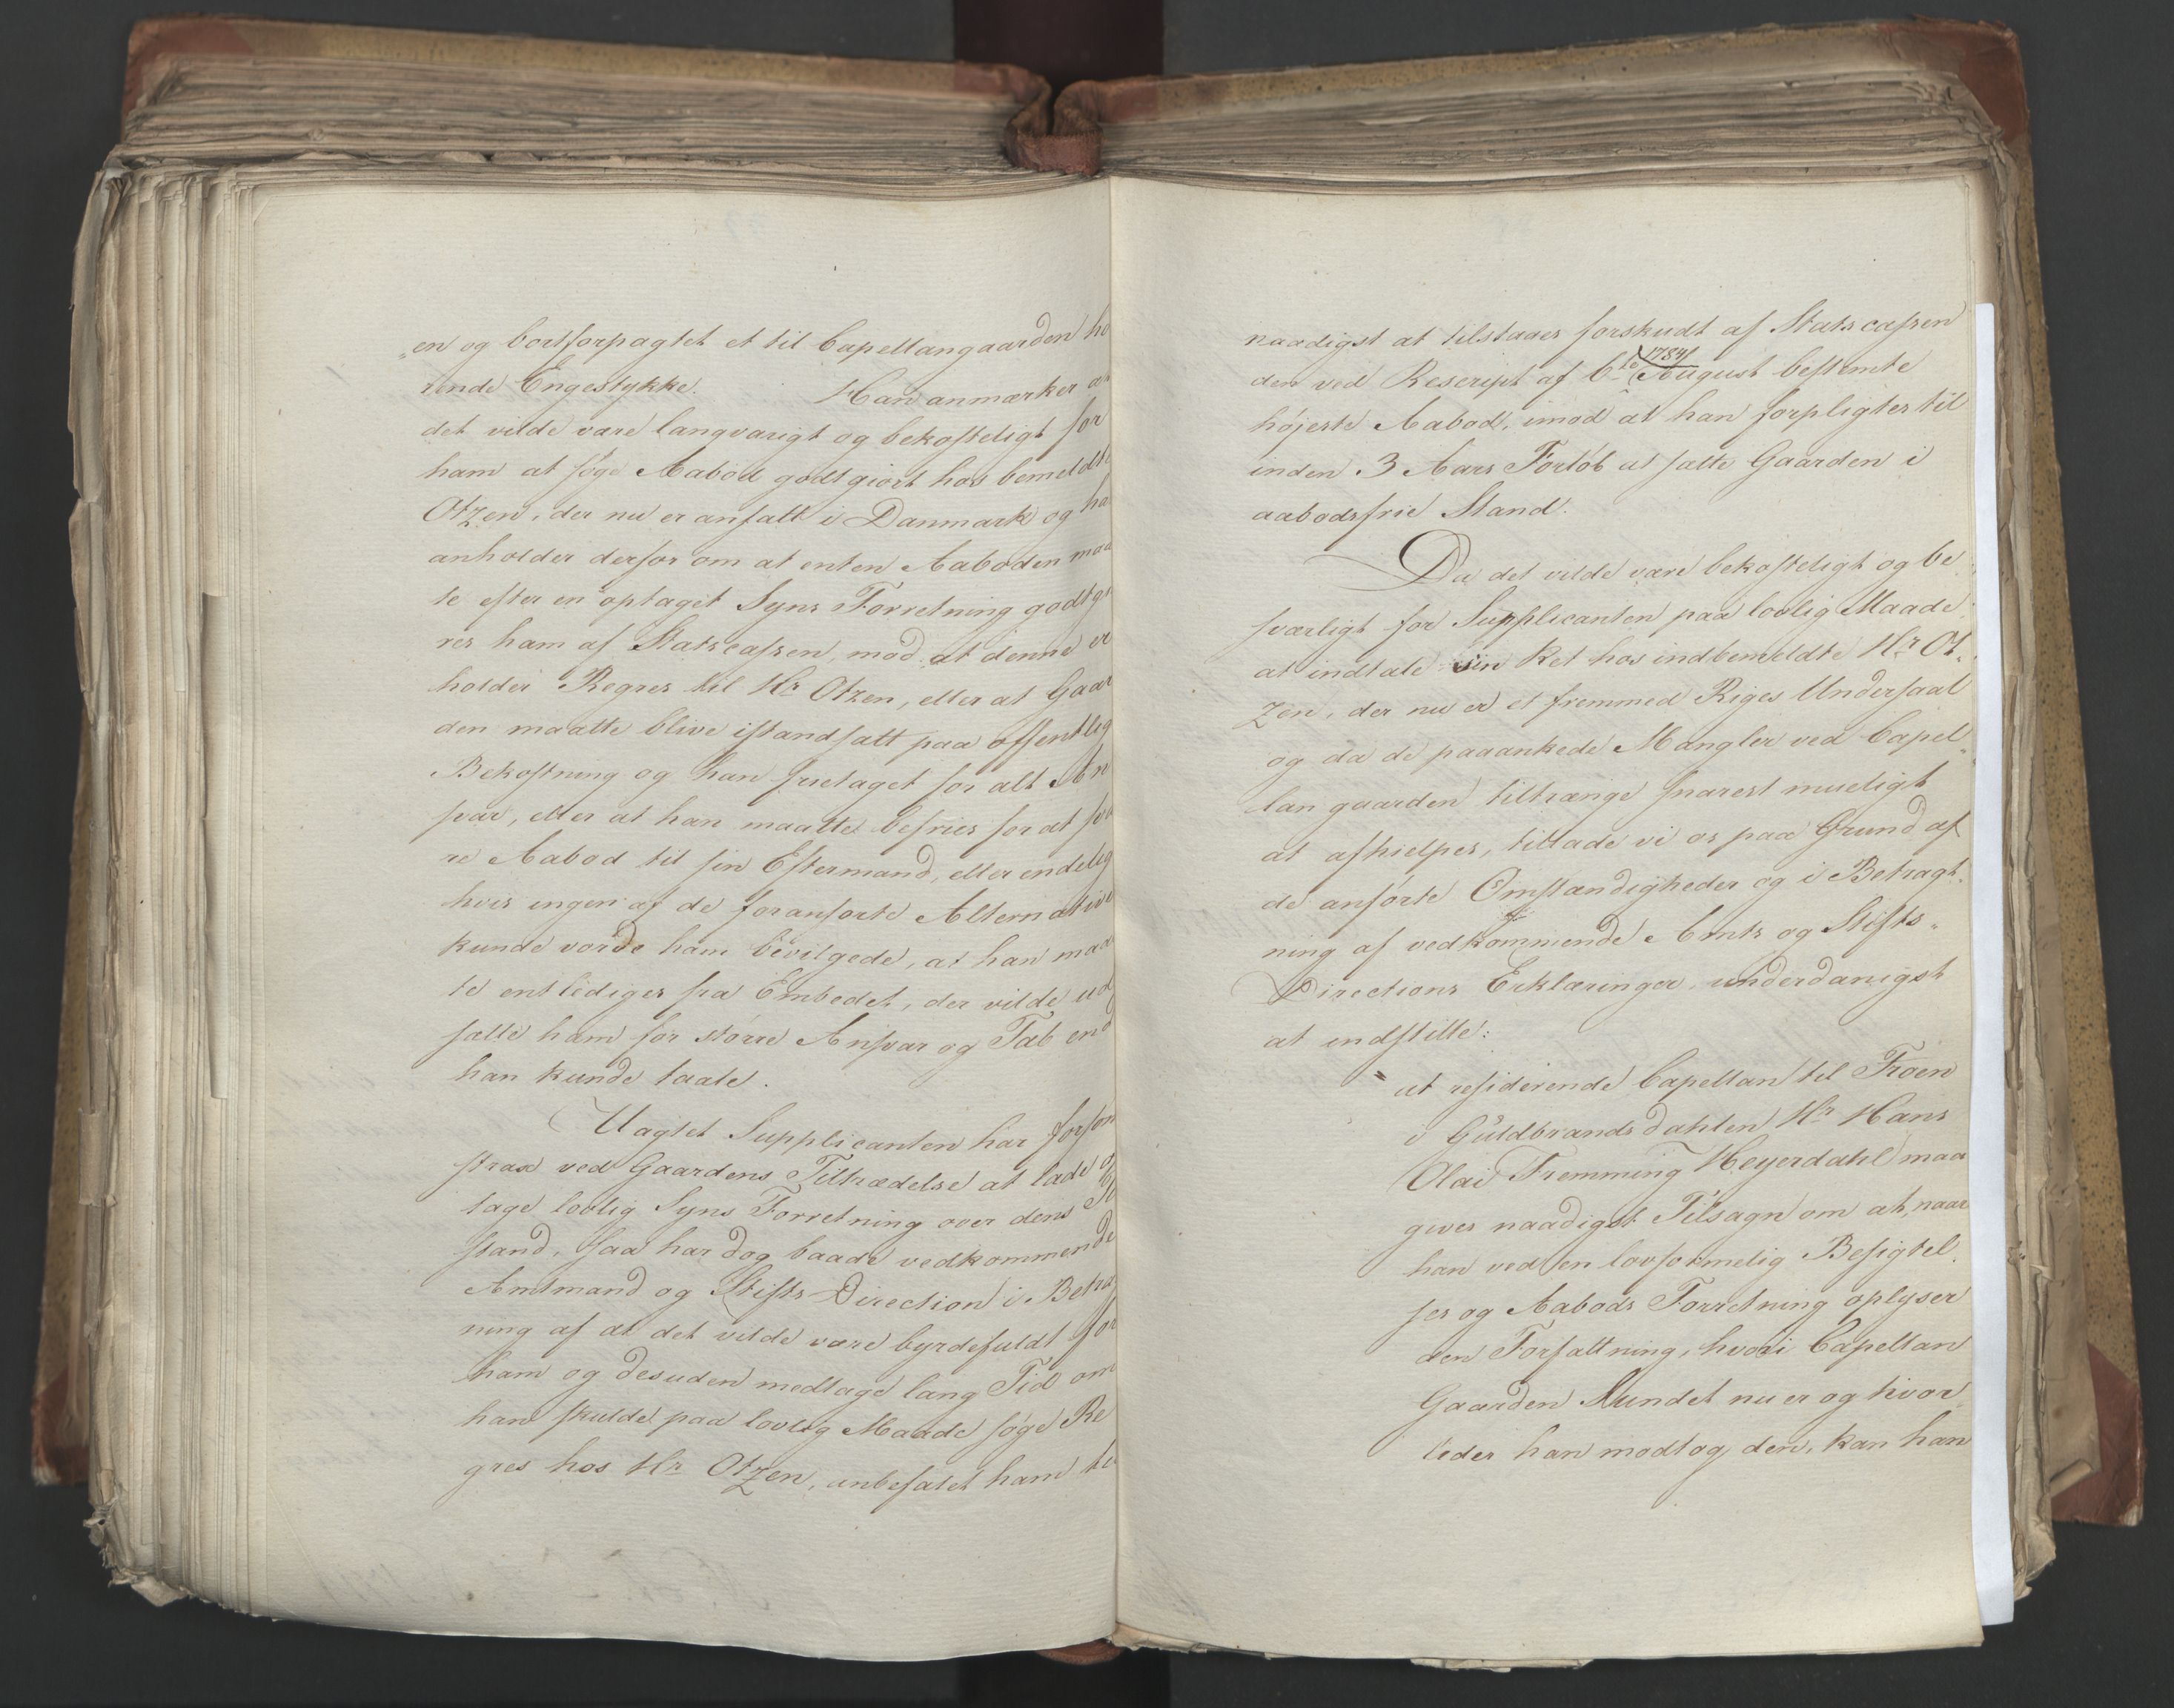 „en og bortforpagtet et til Capellangaarden hø
rende Engestykke. Han anmærker at
det vilde være langvarigt og bekosteligt for
ham at søge Aabod godtgiort hos bemeldte
Otzen, der nu er ansatt i Danmark og ha
anholder derfor om at enten Aaboden maa
te efter en optaget Syns Forretning godtgø
res ham af Statscassen, mod at denne er
holder Regres til Hr Otzen, eller at Gaar
den maatte blive istandsatt paa offentlig
Bekostning og han fritaget for alt An
svar, eller at han maatte befries for at sva
re Aabod til sin Eftermand, eller endelig
hvis ingen af de foranførte Alternative
kunde vorde ham bevilgede, at han maa
te entlediges fra Embedet, der vilde ud
sætte ham for større Ansvar og Tab end
han kunde taale.
Uagtet Supplicanten har forsøm
strax ved Gaardens Tiltrædelse at lade op
tage lovlig Syns Forretning over dens Til
stand, saa har dog baade vedkommende
Amtmand og Stifts Direction i Betra
ning af at det vilde være byrdefuldt for
ham og desuden medtage lang Tid om
han skulde paa lovlig Maade søge Re
gres hos Hr Otzen, anbefalet ham til
naadigst at tilstaaes forskudt af Statscassen
den ved Rescript af 6te August 1784 bestemte
højeste Aabod, imod at han forpligtes til
inden 3 Aars Forløb at sætte Gaarden i
aabodsfrie Stand.
Da det vilde være bekosteligt og be
sværligt for Supplicanten paa lovlig Maade
at indtale sin Ret hos indbemeldte Hr Ot„
zen, der nu er et fremmed Riges Undersaat
og da de paaankede Mangler ved Capel„
langaarden tiltrænge snarest mueligt
at afhielpes, tillade vi os paa Grund af
de anførte Omstændigheder og i Betragt„
ning af vedkommende Amts og Stifts„
Directions Erklæringer, underdanigst
at indstille:
at residerende Capellan til Froen
i Guldbrandsdahlen Hr Hans
Olai Fremming Heyerdahl maa
gives naadigst Tilsagn om at, naar
han ved en lovformelig Besigtel„
ses og Aabods Forretning oplyser
den Forfattning, hvori Capellan
Gaarden Sundet nu er og hvor„
ledes han modtog den, kan han